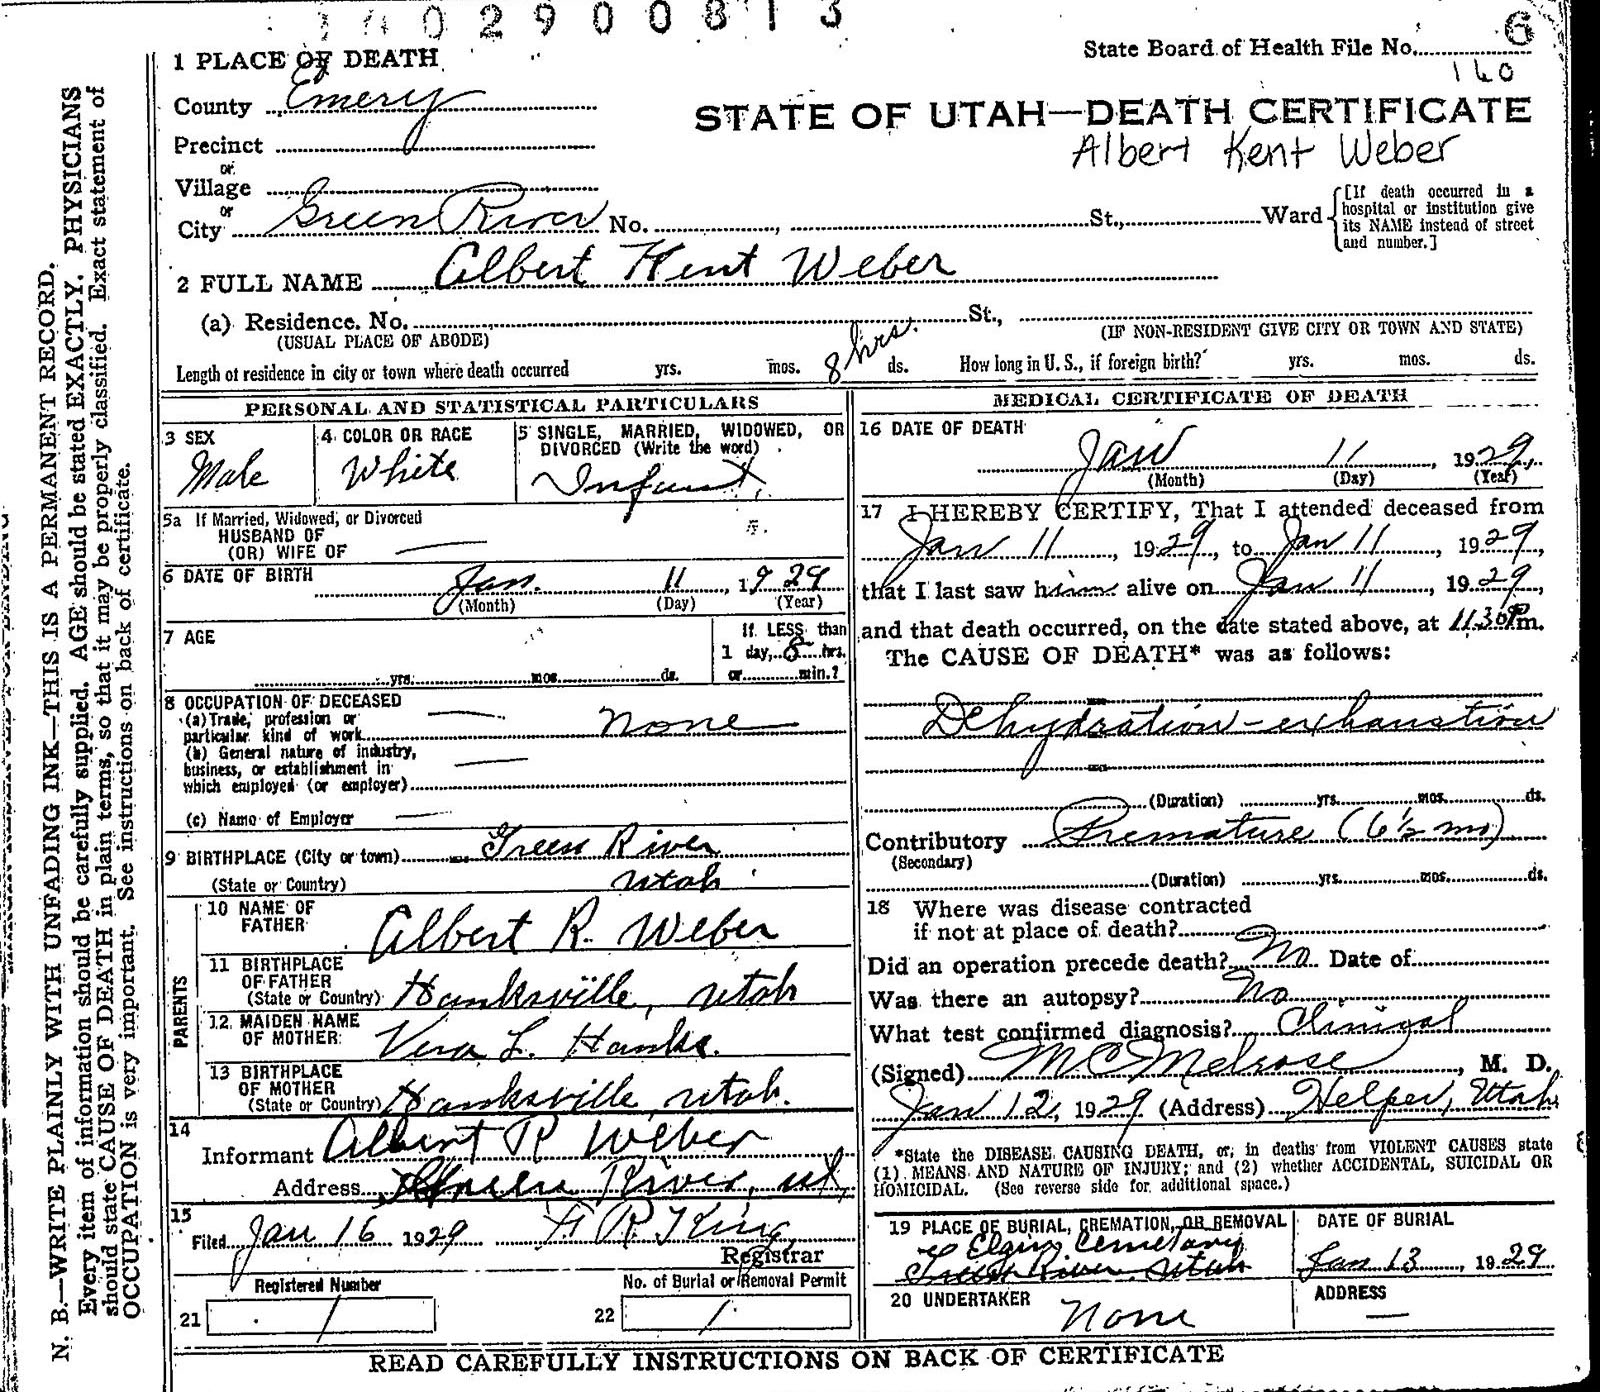 2900813
6
State Board of Health File No.
160
1 PLACE OF DEATH
County Emery
STATE OF UTAH—DEATH CERTIFICATE
Albert Kent Weber
Precinct
or
Village
or
City Green River No. , St., Ward
[If death occurred in a
hospital or institution give
its NAME instead of street
and number.]
2 FULL NAME Albert Kent Weber
(a) Residence. No. St.,
(USUAL PLACE OF ABODE) (IF NON-RESIDENT GIVE CITY OR TOWN AND STATE)
Length of residence in city or town where death occurred yrs. mos. 8 hrs. ds. How long in U. S., if foreign birth? yrs. mos. ds.
PERSONAL AND STATISTICAL PARTICULARS
3 SEX
Male
4 COLOR OR RACE
White
5 SINGLE, MARRIED, WIDOWED, OR
DIVORCED (Write the word)
Infant
5a If Married, Widowed, or Divorced
HUSBAND OF
(OR) WIFE OF —
6 DATE OF BIRTH Jan. 11, 1929
(Month) (Day) (Year)
7 AGE
yrs. mos. ds.
If LESS than
1 day, 8 hrs.
or min.?
8 OCCUPATION OF DECEASED
(a) Trade, profession or
particular kind of work — none
(b) General nature of industry,
business, or establishment in
which employed (or employer) —
(c) Name of Employer —
9 BIRTHPLACE (City or town) Green River
(State or Country) Utah
PARENTS
10 NAME OF
FATHER Albert R. Weber
11 BIRTHPLACE
OF FATHER
(State or Country) Hanksville, Utah
12 MAIDEN NAME
OF MOTHER Vera L. Hanks.
13 BIRTHPLACE
OF MOTHER
(State or Country) Hanksville, Utah.
14
Informant Albert R Weber
Address Green River, Ut,
15
Filed Jan 16 1929 R. King
Registrar
Registered Number
21 1
No. of Burial or Removal Permit
22 1
MEDICAL CERTIFICATE OF DEATH
16 DATE OF DEATH
Jan 11, 1929,
(Month) (Day) (Year)
17 I HEREBY CERTIFY, That I attended deceased from
Jan 11, 1929, to Jan 11, 1929,
that I last saw him alive on Jan 11, 1929,
and that death occurred, on the date stated above, at 11.30 Pm.
The CAUSE OF DEATH* was as follows:
Dehydration – exhaustion
(Duration) yrs. mos. ds.
Contributory Premature (6½ mo)
(Secondary)
(Duration) yrs. mos. ds.
18 Where was disease contracted
if not at place of death?
Did an operation precede death? No Date of
Was there an autopsy? No
What test confirmed diagnosis? Clinical
(Signed) M C Melrose, M. D.
Jan 12, 1929 (Address) Helper, Utah
*State the DISEASE CAUSING DEATH, or, in deaths from VIOLENT CAUSES state
(1) MEANS AND NATURE OF INJURY; and (2) whether ACCIDENTAL, SUICIDAL OR
HOMICIDAL. (See reverse side for additional space.)
19 PLACE OF BURIAL, CREMATION, OR REMOVAL
Elgin Cemetary
Green River, Utah
DATE OF BURIAL
Jan 13, 1929
20 UNDERTAKER
None
ADDRESS
—
READ CAREFULLY INSTRUCTIONS ON BACK OF CERTIFICATE
N. B.—WRITE PLAINLY WITH UNFADING INK—THIS IS A PERMANENT RECORD.
Every item of information should be carefully supplied. AGE should be stated EXACTLY. PHYSICIANS
should state CAUSE OF DEATH in plain terms, so that it may be properly classified. Exact statement of
OCCUPATION is very important. See instructions on back of certificate.